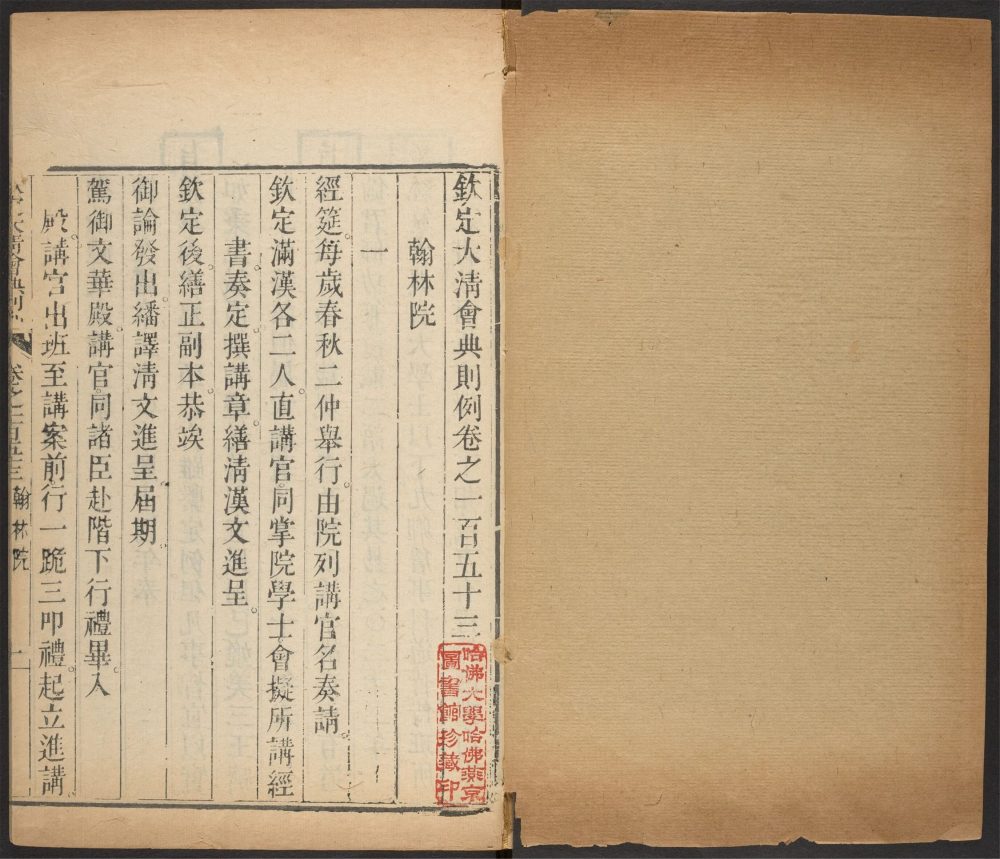 欽定大淸會典則例卷之一百五十三
翰林院
一
經筵每歲春秋二仲舉行由院列講官名奏請
欽定滿漢各二人直講官同掌院學士會擬所講經
書奏定撰講章繕淸漢文進呈
欽定後繕正副本恭竢
御論發出繙譯淸文進呈屆期
駕御文華殿講官同諸臣赴階下行禮畢入
殿講官出班至講案前行一跪三叩禮起立進講
翰林院
哈佛大學哈佛燕京
圖書館珍藏印